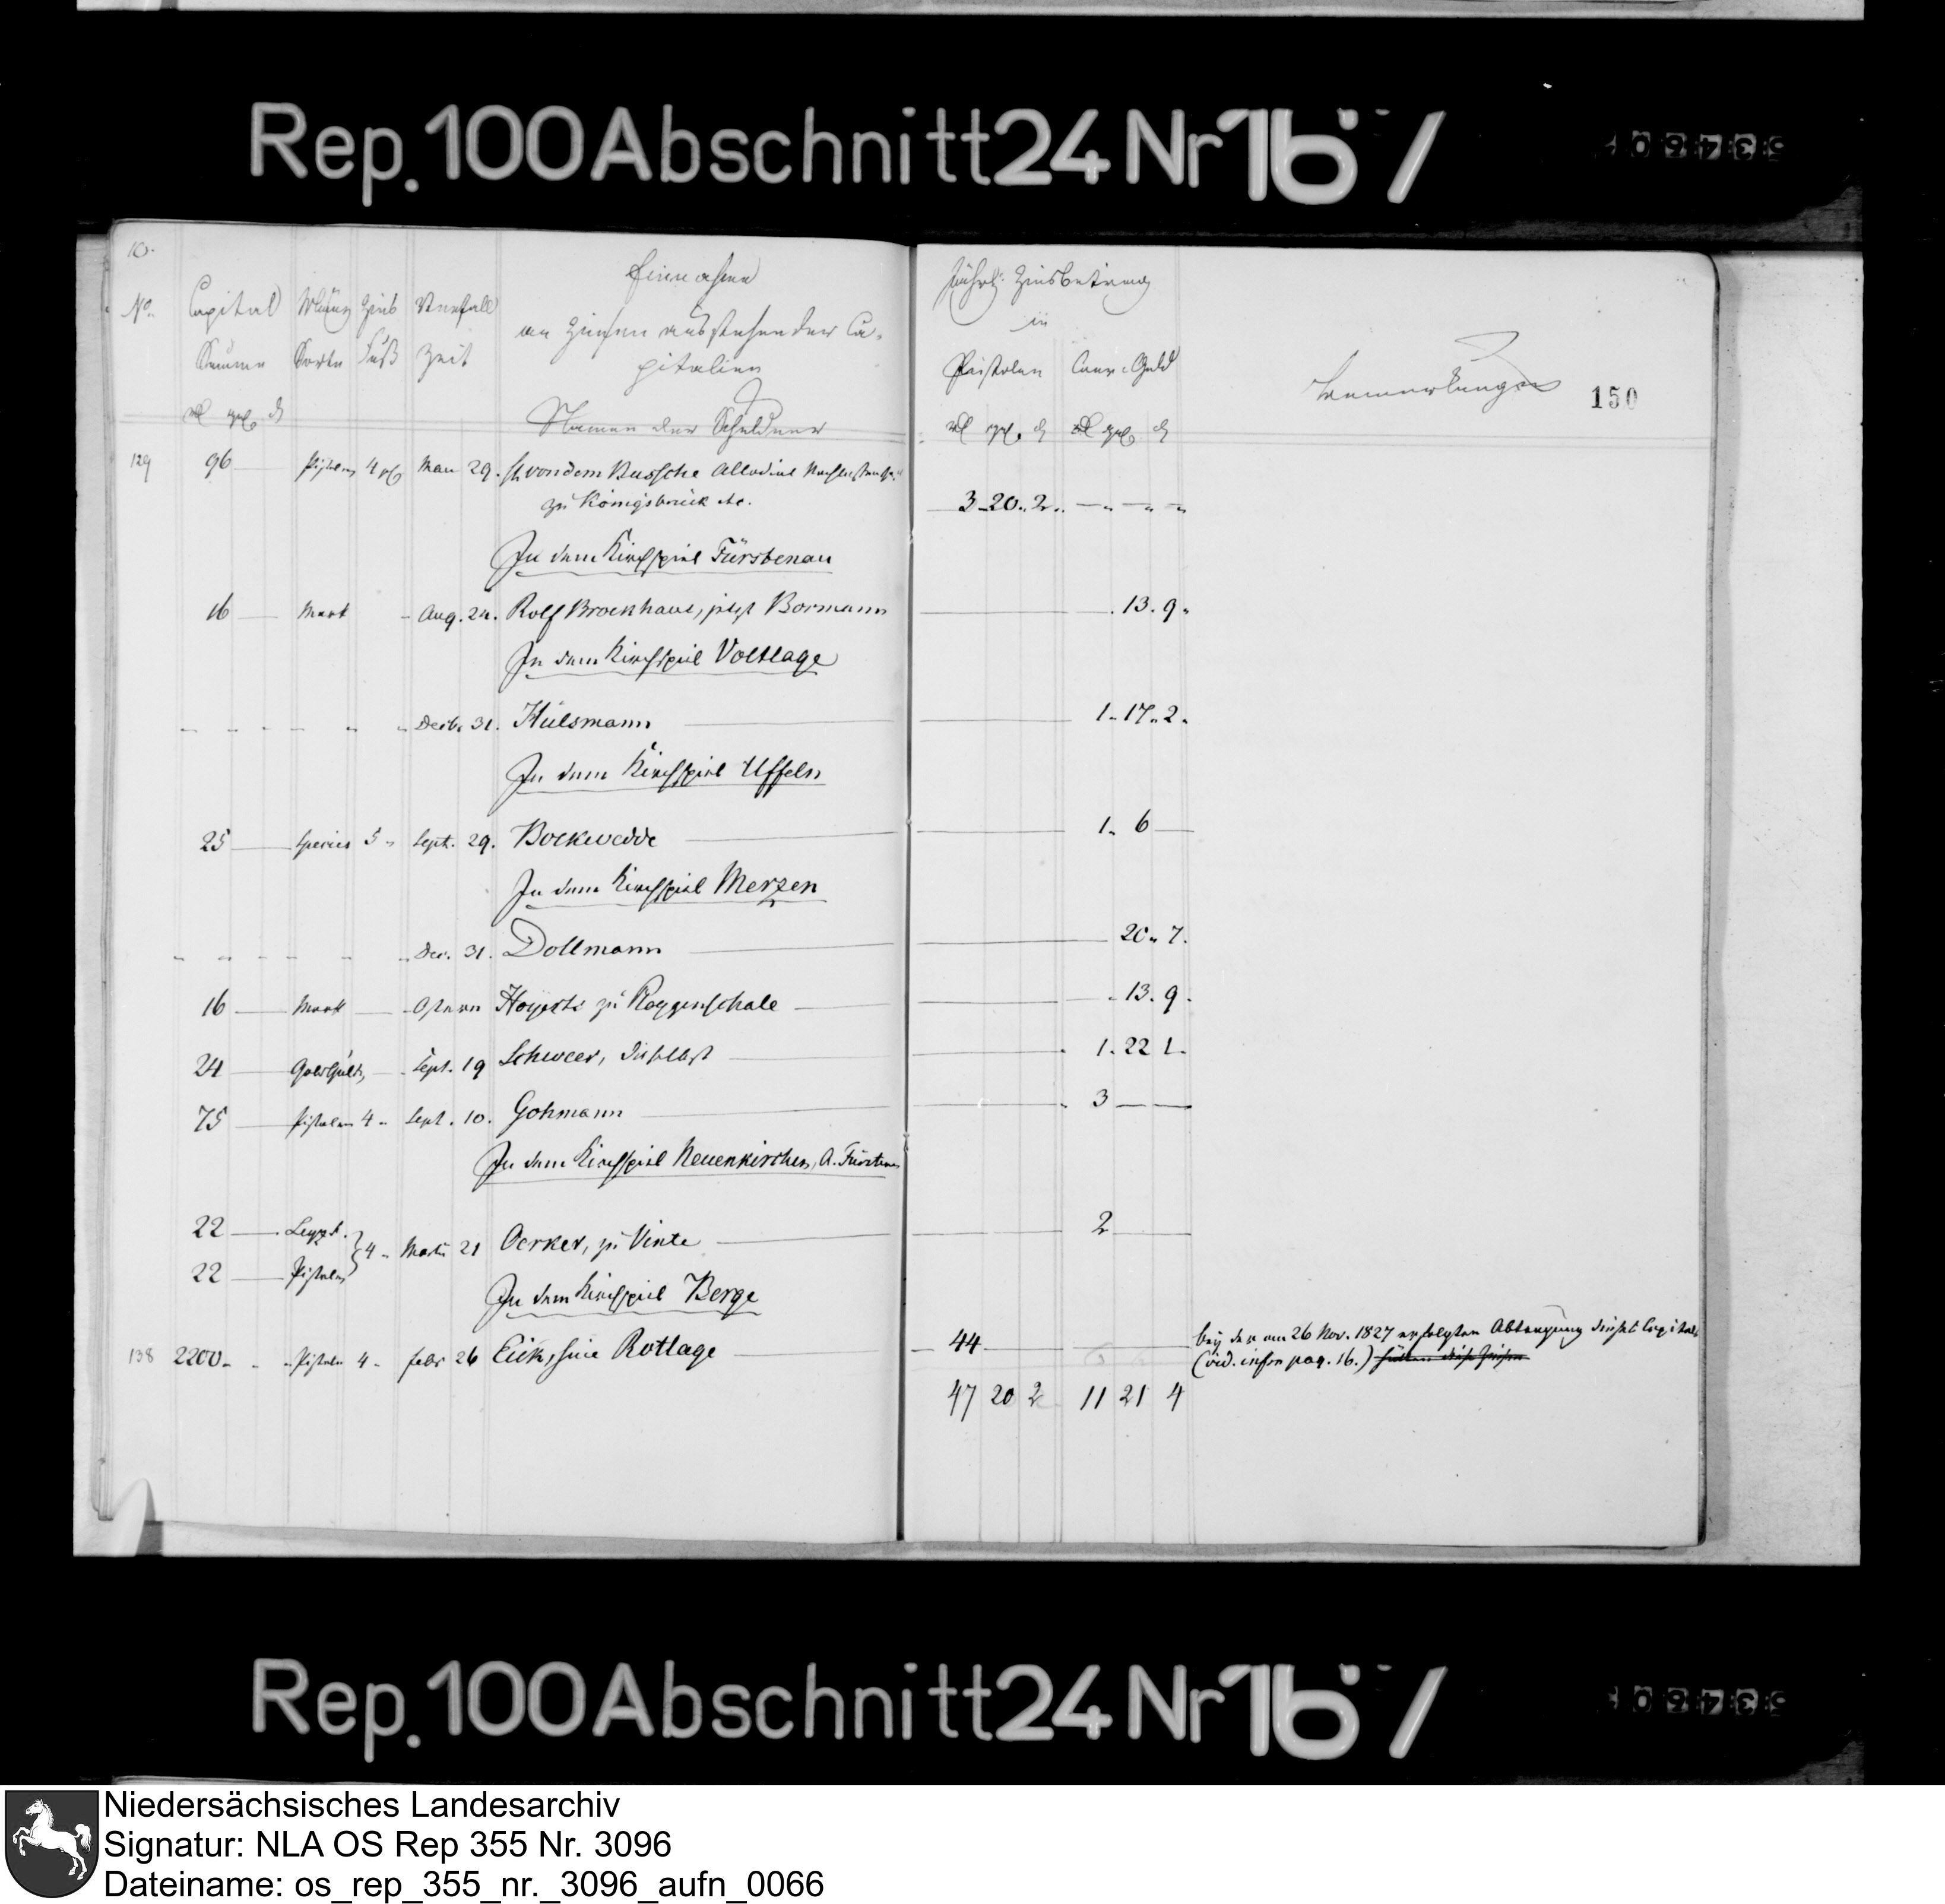 Rep. 100 Abschnitt 24 Nr 167
10.
Einnahme
an Zinsen ausstehender Ca-
pitalien
Namen der Schuldner
No. Capital Summe Münz Sorte Zins Fuß Verfall Zeit
rtl ggl d
Jährl: Zinsbetrag
in
Pistolen Conv: Geld
rtl ggl d rtl ggl d
Bemerkungen 150
129 96 — Pistolen 4 Mart 29. H. von dem Bussche Allodial
zu Königsbrück etc. 3 20 2
In dem Kirchspiel Fürstenau
16 — Mark - Aug. 24. Rolf Brockhaus, jetzt Bormann 13. 9.
In dem Kirchspiel Voltlage
Decb. 31. Hülsmann 1. 17. 2.
In dem Kirchspiel Uffeln
25 — Species 5 Sept. 29. Bockwedde 1. 6
In dem Kirchspiel Merzen
Dec. 31. Dollmann 20. 7.
16 — Mark — Ostern zu Roggenschale 13. 9.
24 — Goldguld. - Sept. 19 Schweer, daselbst 1. 22 1.
75 — Pistolen 4 Sept. 10. Gohmann 3
In dem Kirchspiel Neuenkirchen, A. Fürstenau
22 —
22 — Pistolen } 4 21 Oerker, zu Vinte 2
In dem Kirchspiel Berge
138 2200 Pistolen 4 Febr 26 Eick, sive Rotlage 44 bey der am 26 Nov. 1827 erfolgten Ablegung dieses Capitals
(vid. infra pag. 16.)
47 20 2 11 21 4
Rep. 100 Abschnitt 24 Nr 167
Niedersächsisches Landesarchiv
Signatur: NLA OS Rep 355 Nr. 3096
Dateiname: os_rep_355_nr._3096_aufn_0066